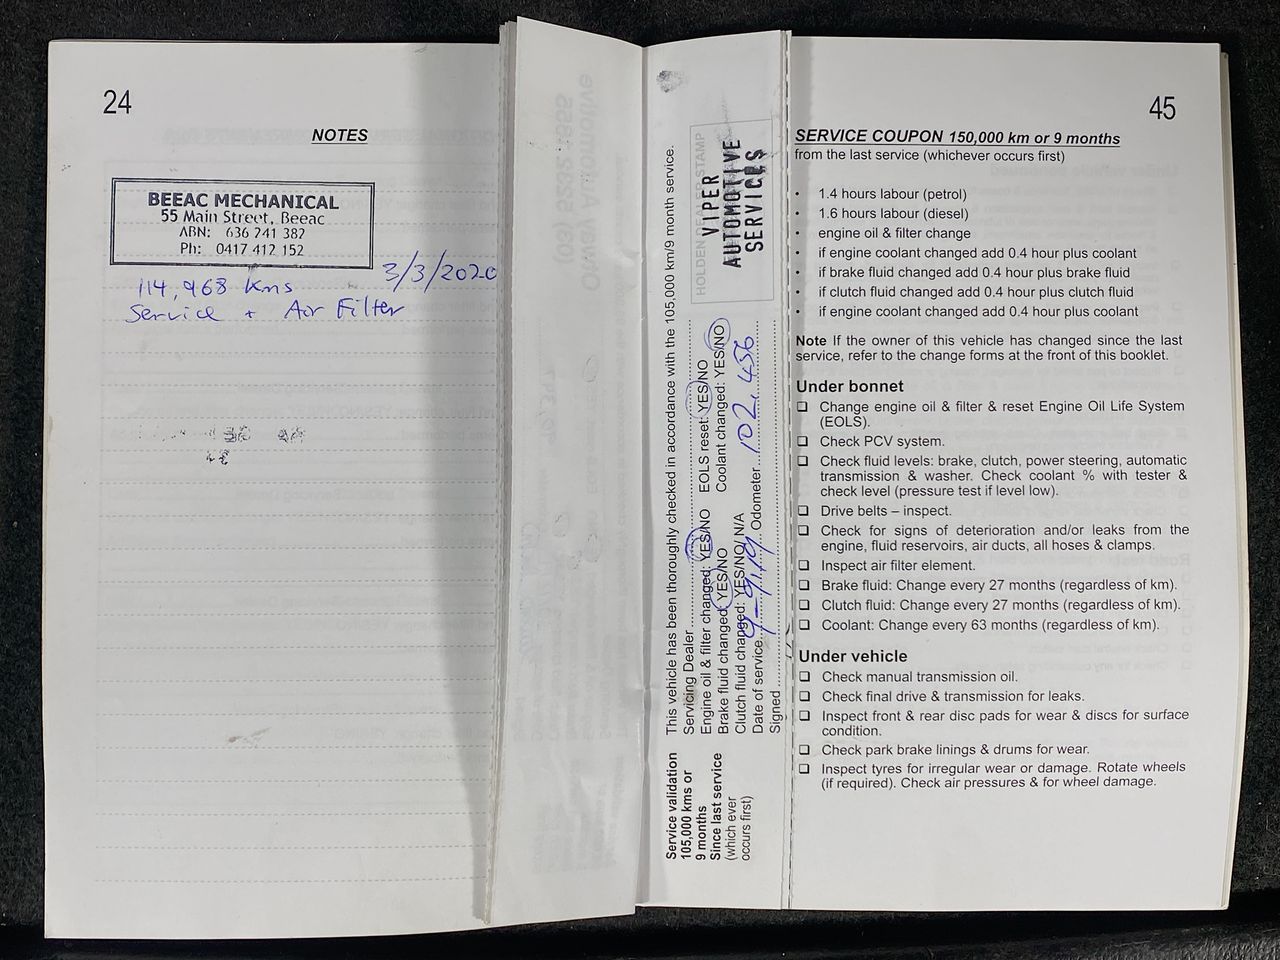 24
NOTES
BEEAC MECHANICAL
55 Main Street, Beeac
ABN: 636 241 382
Ph: 0417 412 152
3/3/2020
114,968 Kms
Service + Air Filter
This vehicle has been thoroughly checked in accordance with the 105,000 km/9 month service.
HOLDEN DEALER STAMP
VIPER
AUTOMOTIVE
SERVICES
Servicing Dealer
Engine oil & filter changed: YES/NO EOLS reset: YES/NO
Brake fluid changed: YES/NO Coolant changed: YES/NO
Clutch fluid changed: YES/NO/ N/A
Date of service 9-9-19 Odometer 102,456
Signed
Service validation
105,000 kms or
9 months
Since last service
(which ever
occurs first)
45
SERVICE COUPON 150,000 km or 9 months
from the last service (whichever occurs first)
• 1.4 hours labour (petrol)
• 1.6 hours labour (diesel)
• engine oil & filter change
• if engine coolant changed add 0.4 hour plus coolant
• if brake fluid changed add 0.4 hour plus brake fluid
• if clutch fluid changed add 0.4 hour plus clutch fluid
• if engine coolant changed add 0.4 hour plus coolant
Note If the owner of this vehicle has changed since the last
service, refer to the change forms at the front of this booklet.
Under bonnet
❏ Change engine oil & filter & reset Engine Oil Life System
(EOLS).
❏ Check PCV system.
❏ Check fluid levels: brake, clutch, power steering, automatic
transmission & washer. Check coolant % with tester &
check level (pressure test if level low).
❏ Drive belts – inspect.
❏ Check for signs of deterioration and/or leaks from the
engine, fluid reservoirs, air ducts, all hoses & clamps.
❏ Inspect air filter element.
❏ Brake fluid: Change every 27 months (regardless of km).
❏ Clutch fluid: Change every 27 months (regardless of km).
❏ Coolant: Change every 63 months (regardless of km).
Under vehicle
❏ Check manual transmission oil.
❏ Check final drive & transmission for leaks.
❏ Inspect front & rear disc pads for wear & discs for surface
condition.
❏ Check park brake linings & drums for wear.
❏ Inspect tyres for irregular wear or damage. Rotate wheels
(if required). Check air pressures & for wheel damage.